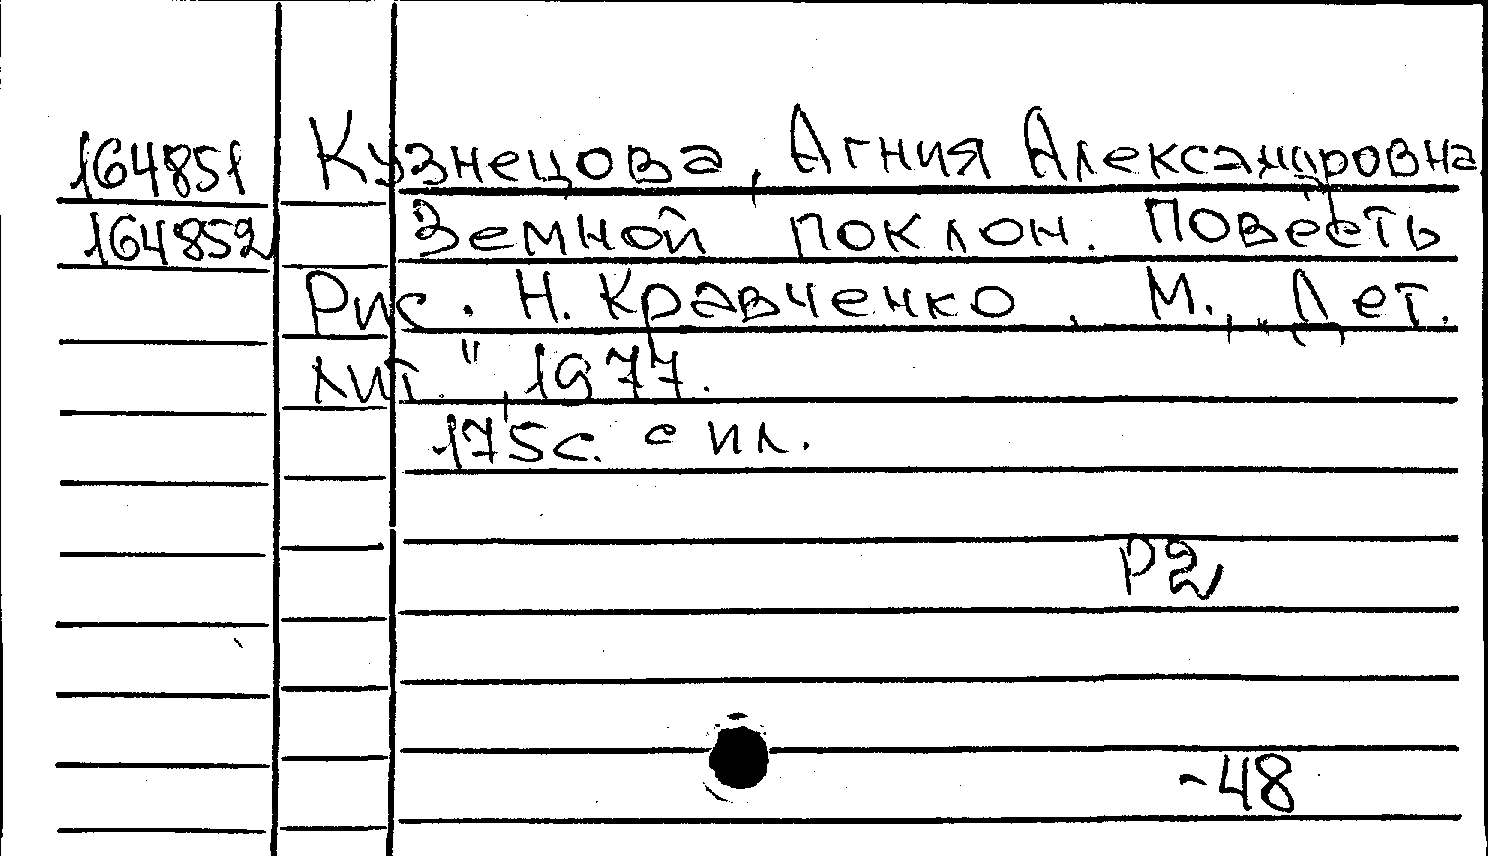 164851 Кузнецова, Агния Александровна
164852 Земной поклон. Повесть
Рис. Н. Кравченко. М., „Дет.
лит.", 1977.
175с. с ил.
Р2
-48